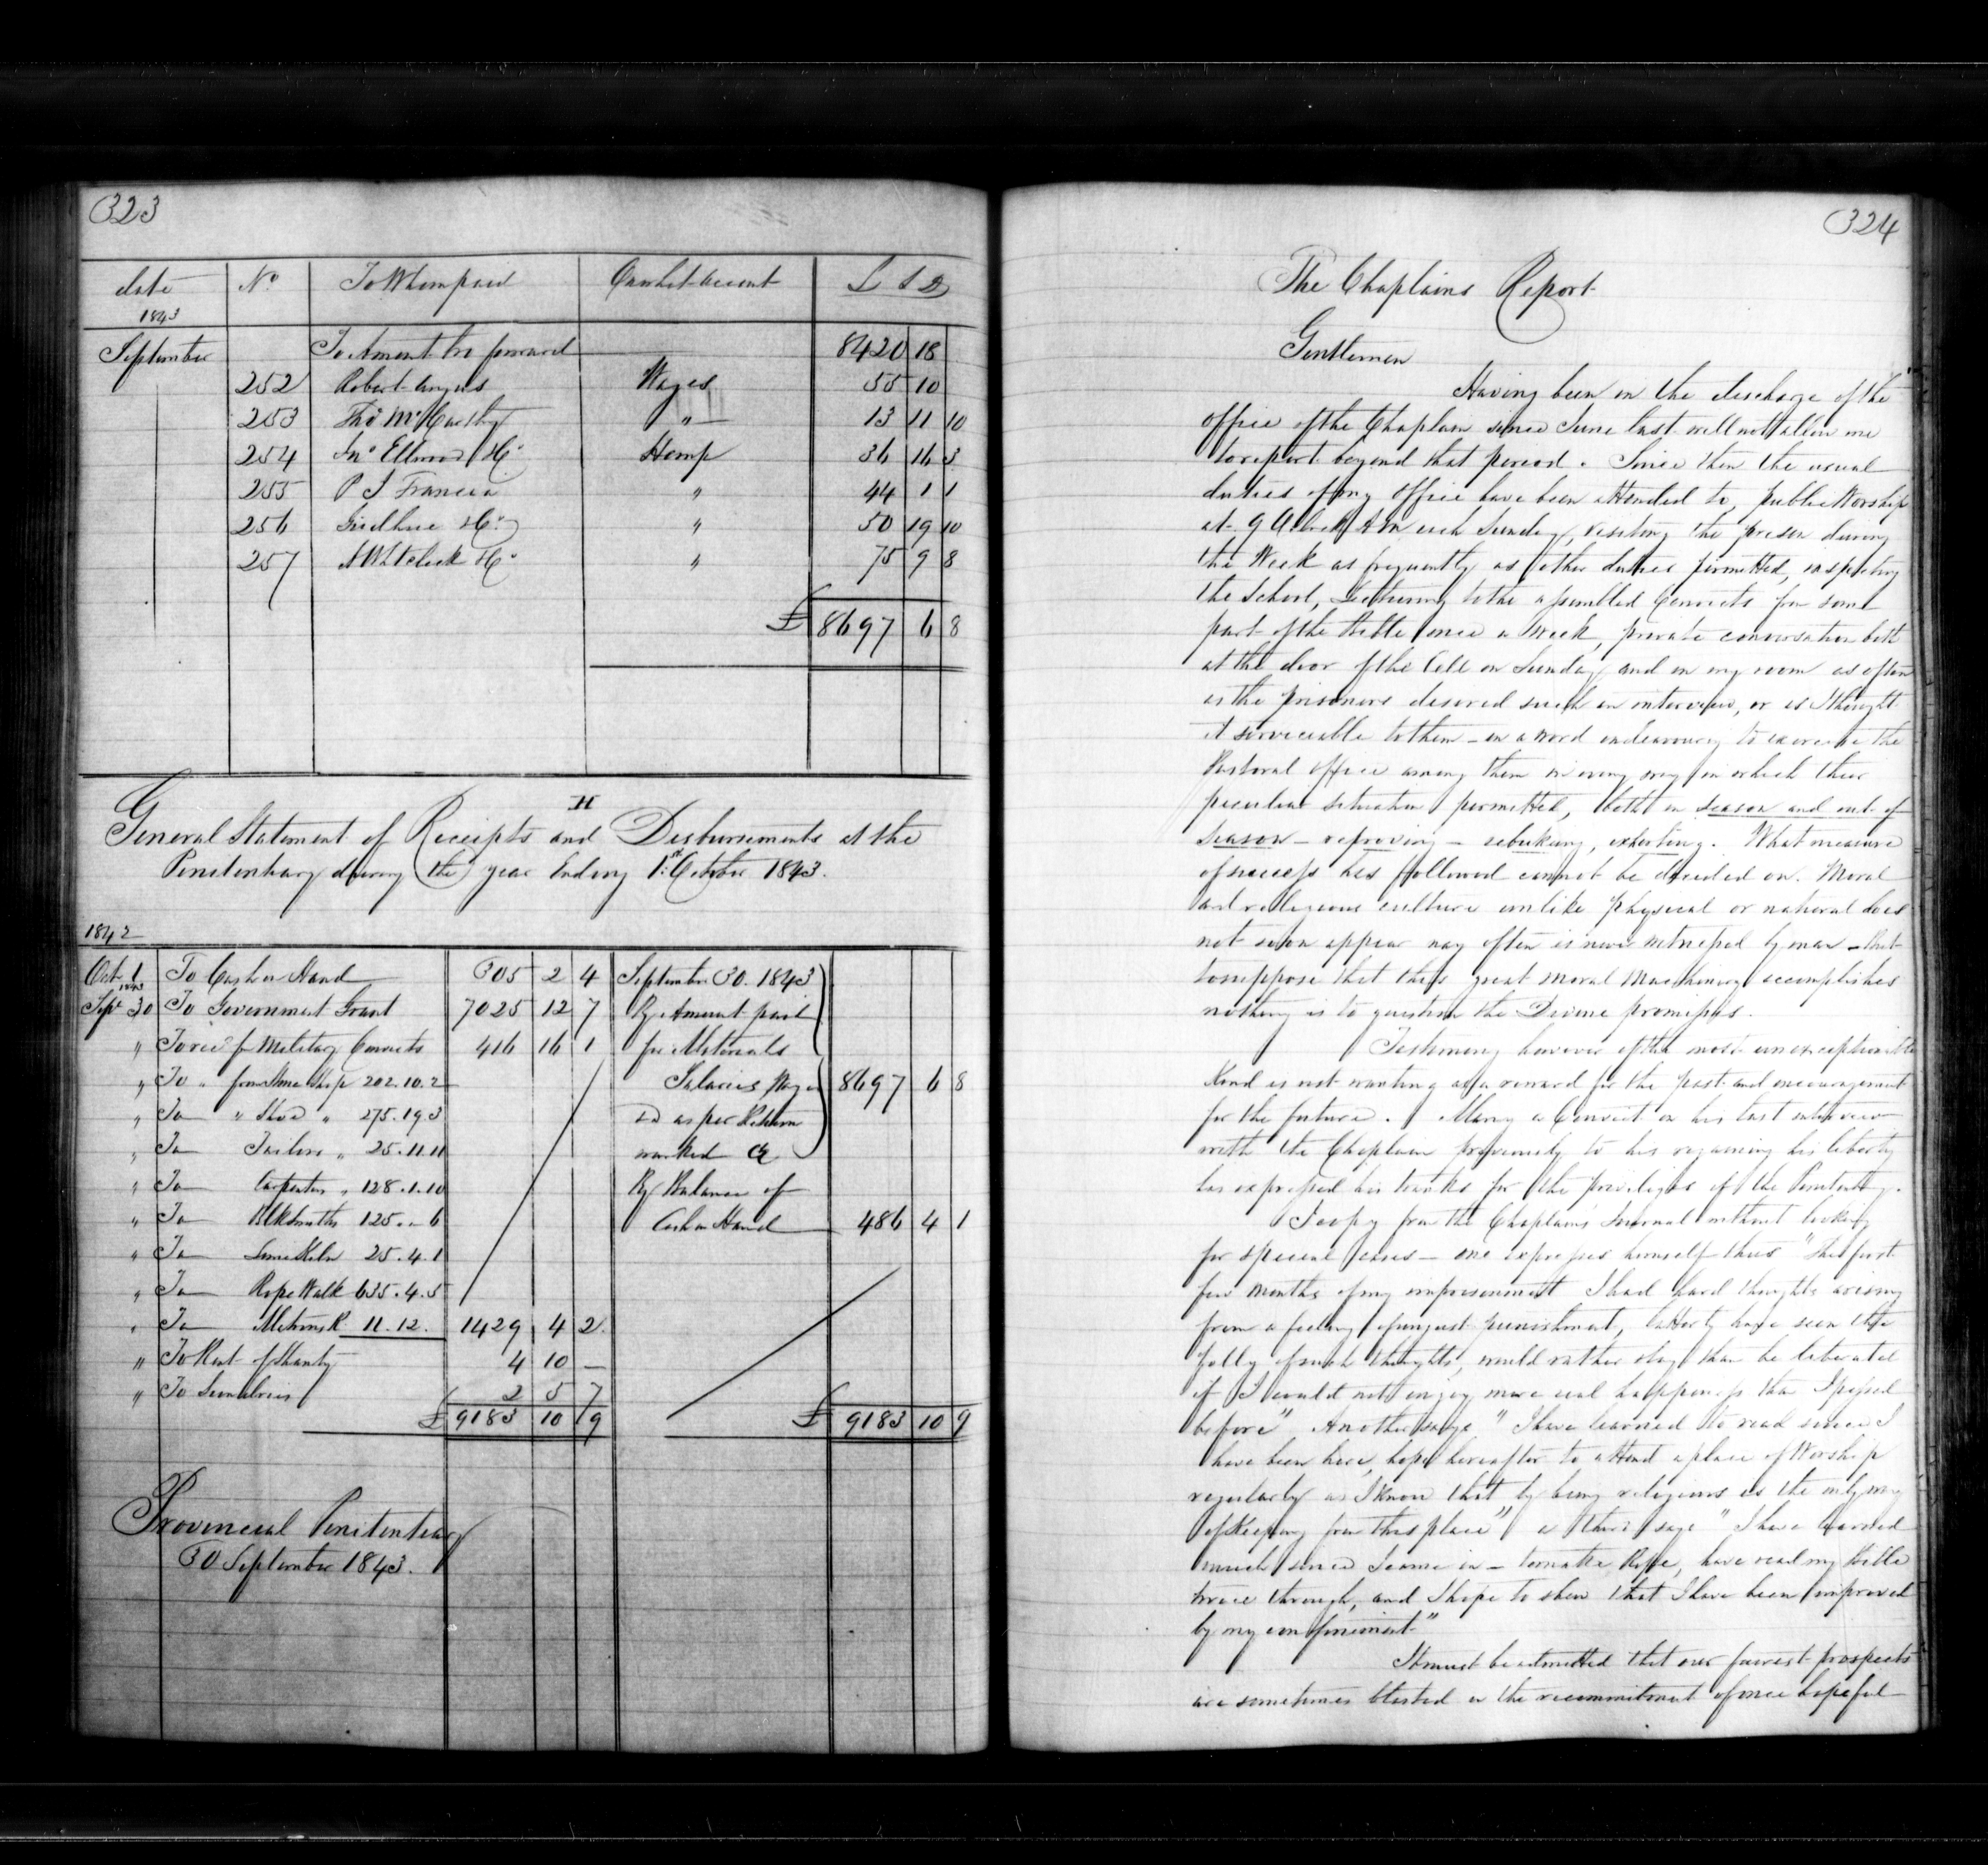 323
date No. To Whom paid On what account L S D
1843
September To Amount bro forward 8420 18
252 Robert Angus Wages 55 10
253 Thos McCarthy " 13 11 10
254 Jno Ellwood & Co Hemp 36 16 3
255 P J " 44 1 1
256 & Co " 50 19 10
257 & Co " 75 9 8
£ 8697 6 8
H
General Statement of Receipts and Disbursements at the
Penitentiary during the year Ending 1st October 1843.
1842
Oct. 1 To Cash on Hand 305 2 4 September 30. 1843
1843
Sept 30 To Government Grant 7025 12 7 By Amount paid
" To recd for Military Convicts 416 16 1 for Materials
" To " from Stone Shop 202.10.2 Salaries Wages 8697 6 8
" To " Shoe " 275.19.3 as per Return
" To Tailors " 25.11.11 marked G
" To Carpenters " 128.1.10 By Balance of
" To Blksmiths 125.-.6 Cash on Hand 486 4 1
" To Lime Kiln 25.4.1
" To Rope Walk 635.4.5
" To Matrons R 11.12. 1429 4 2.
" To Rent of Shanty 4 10 —
" To Sundries 2 5 7
£ 9183 10 9 £ 9183 10 9
Provincial Penitentiary
30 September 1843.
324
The Chaplains Report
Gentlemen
Having been in the discharge of the
office of the Chaplain since June last will not allow me
to report beyond that period. Since then the usual
duties of my office have been attended to, public Worship
at 9 O'Clock A M each Sunday, visiting the prison during
the Week as frequently as other duties permitted, inspecting
the School, Lecturing to the assembled Convicts from some
part of the Bible once a Week, private conversation both
at the door of the Cell on Sunday and in my room as often
as the prisoners desired such an interview, or as I thought
it serviceable to them – in a word endeavouring to exercise the
Pastoral office among them in every way in which their
peculiar situation permitted, both in season and out of
season – reproving – rebuking, exhorting. What measure
of success has followed cannot be decided on. Moral
and religious culture unlike physical or natural does
not soon appear nay often is never witnessed by man – but
to suppose that this great moral machinery accomplishes
nothing is to question the Divine promises.
Testimony however of the most unexceptionable
Kind is not wanting as a reward for the past and encouragement
for the future. Many a Convict on his last interview
with the Chaplain previously to his regaining his liberty
has expressed his thanks for the priviliges of the Penitentiary.
I copy from the Chaplains Journal without looking
for special cases – one expresses himself thus "The first
few months of my imprisonment I had hard thoughts arising
from a feeling of unjust punishment, latterly have seen the
folly of such thoughts, would rather stay than be liberated
if I could not enjoy more real happiness than I possessed
before" Another says "I have learned to read since I
have been here, hope hereafter to attend a place of Worship
regularly as I know that by being religious is the only way
of Keeping from this place" a third says "I have learned
much since I came in – to make Rope, have read my Bible
twice through, and I hope to shew that I have been improved
by my confinement"
It must be admitted that our fairest prospects
are sometimes blasted in the recommitment of once hopeful